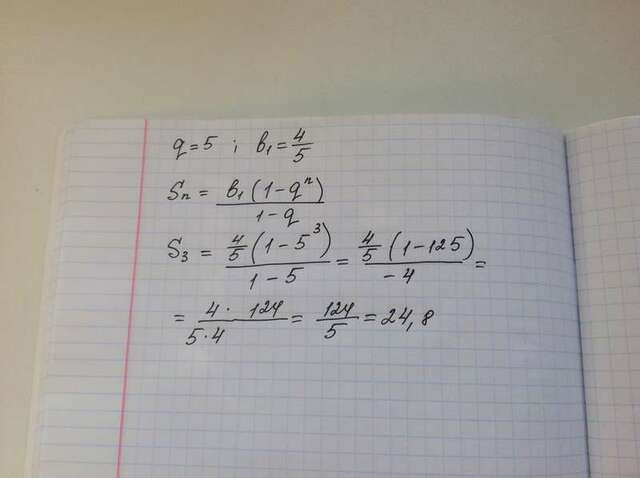 q=5 ; b₁=4/5
Sₙ = b₁(1-qⁿ)/1-q
S₃ = 4/5(1-5³)/1-5 = 4/5(1-125)/-4 =
= 4·124/5·4 = 124/5 = 24,8